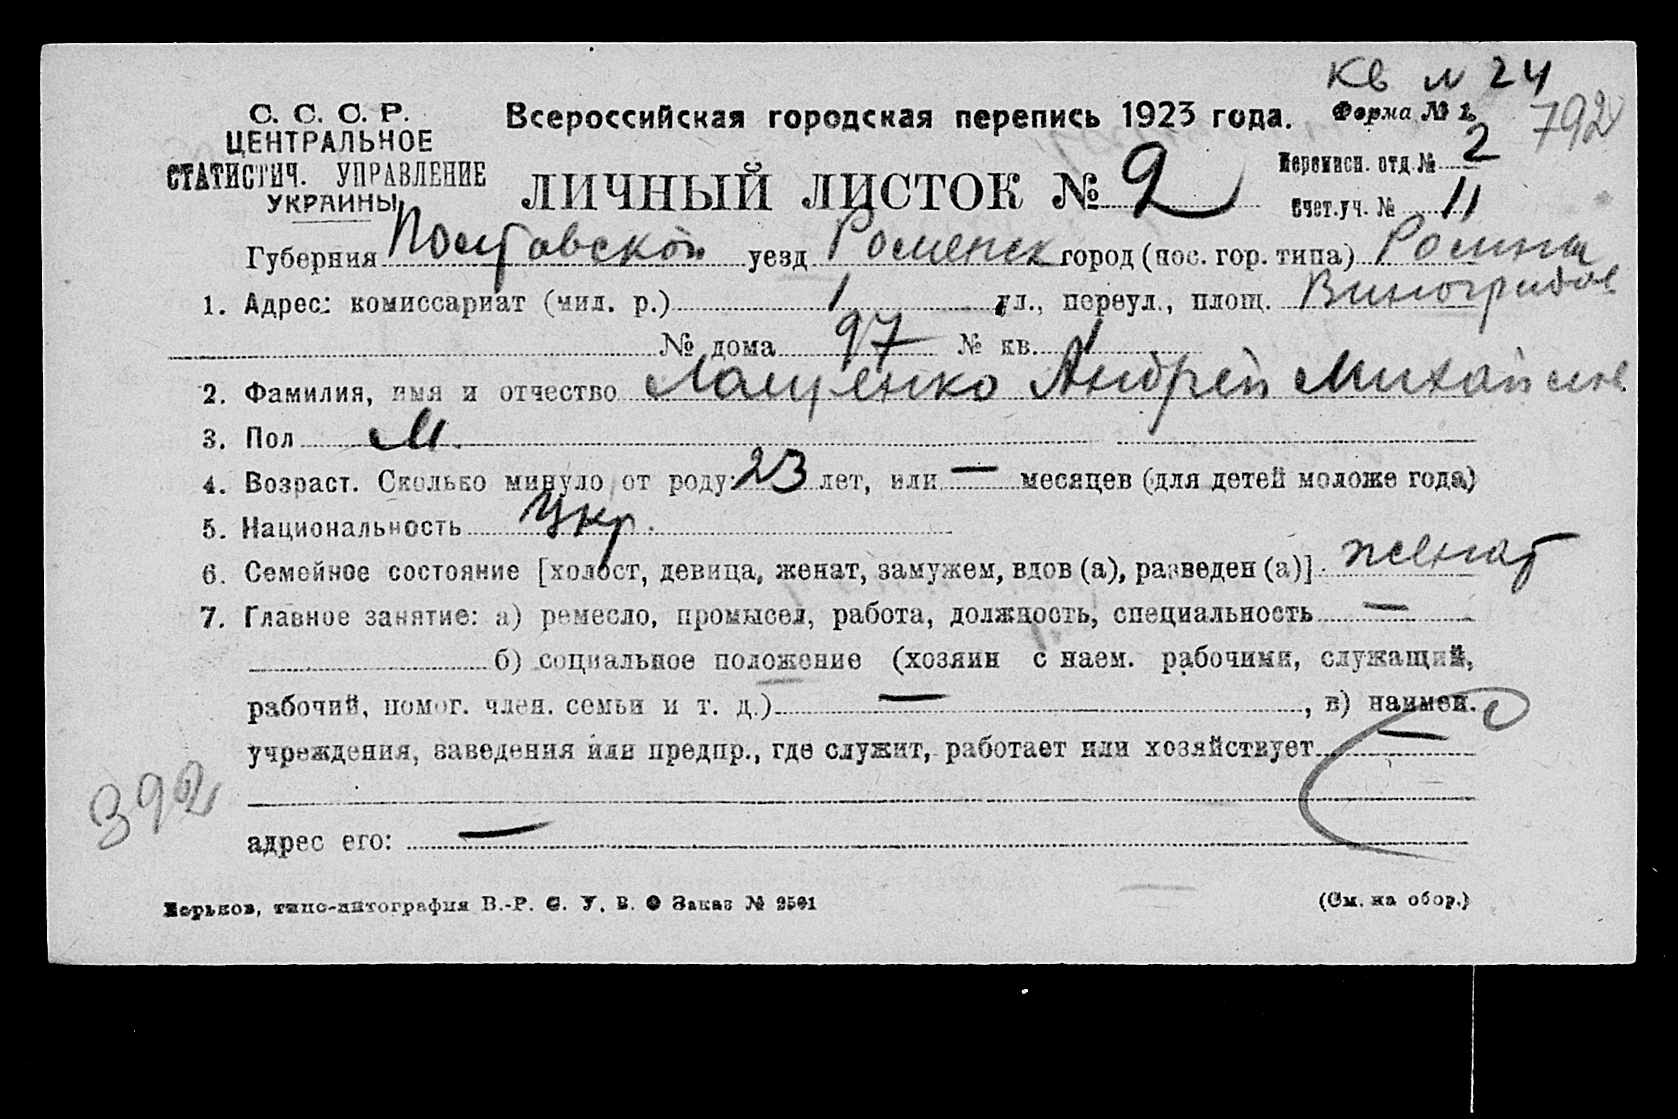 Кв № 24
С. С. С. Р.
ЦЕНТРАЛЬНОЕ
СТАТИСТИЧ. УПРАВЛЕНИЕ
УКРАИНЫ
Всероссийская городская перепись 1923 года.
Форма № 1.
792
ЛИЧНЫЙ ЛИСТОК № 2
Переписн. отд. № 2
Счет. уч. № 11
Губерния Полтавской уезд Роменск город (пос. гор. типа) Ромны
1. Адрес: комиссариат (мил. р.) 1 ул., переул., площ. Виноградов
№ дома 97 № кв. 1
2. Фамилия, имя и отчество Лащенко Андрей Михайлов
3. Пол М.
4. Возраст. Сколько минуло от роду: 23 лет, или — месяцев (для детей моложе года)
5. Национальность Укр.
6. Семейное состояние [холост, девица, женат, замужем, вдов (а), разведен (а)] женат
7. Главное занятие: а) ремесло, промысел, работа, должность, специальность —
б) социальное положение (хозяин с наем. рабочими, служащий,
рабочий, помог. член. семьи и т. д.) — , в) наимен.
учреждения, заведения или предпр., где служит, работает или хозяйствует —
392
адрес его: —
Харьков, типо-литография В.-Р. С. У. В. О Заказ № 2501
(См. на обор.)